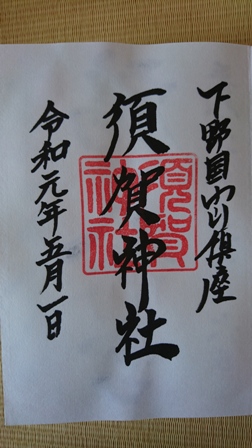 下野国小山鎮座
須賀神社
令和元年五月一日
須賀
神社